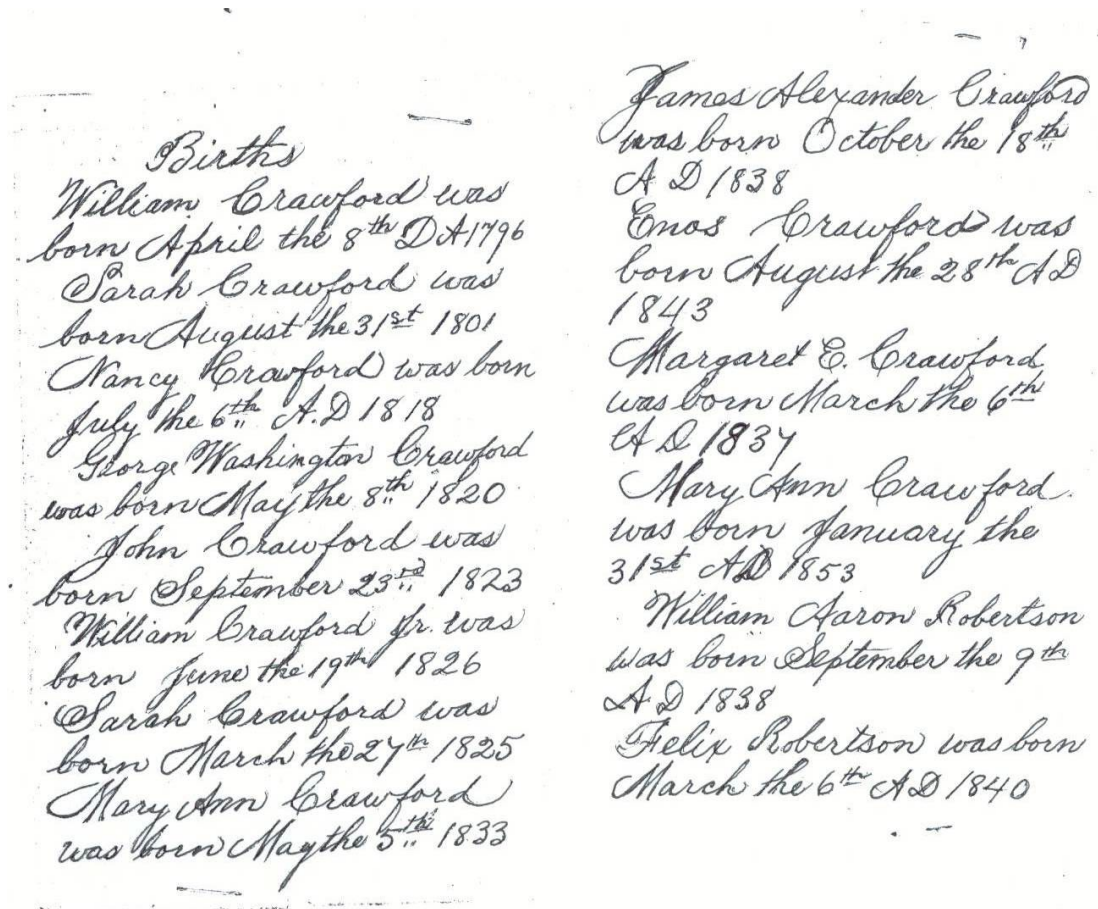 Births
William Crawford was
born April the 8th D A 1796
Sarah Crawford was
born August the 31st 1801
Nancy Crawford was born
July the 6th A.D 1818
George Washington Crawford
was born May the 8th 1820
John Crawford was
born September 23rd 1823
William Crawford Jr. was
born June the 19th 1826
Sarah Crawford was
born March the 27th 1825
Mary Ann Crawford
was born May the 5th 1833
James Alexander Crawford
was born October the 18th
A D 1838
Enos Crawford was
born August the 28th A D
1843
Margaret E. Crawford
was born March the 6th
A D 1837
Mary Ann Crawford
was born January the
31st AD 1853
William Aaron Robertson
was born September the 9th
A D 1838
Felix Robertson was born
March the 6th A D 1840